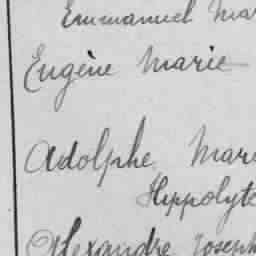 Emmanuel Mar
Eugène Marie
Adolphe Mari
Hippolyte
Alexandre Joseph